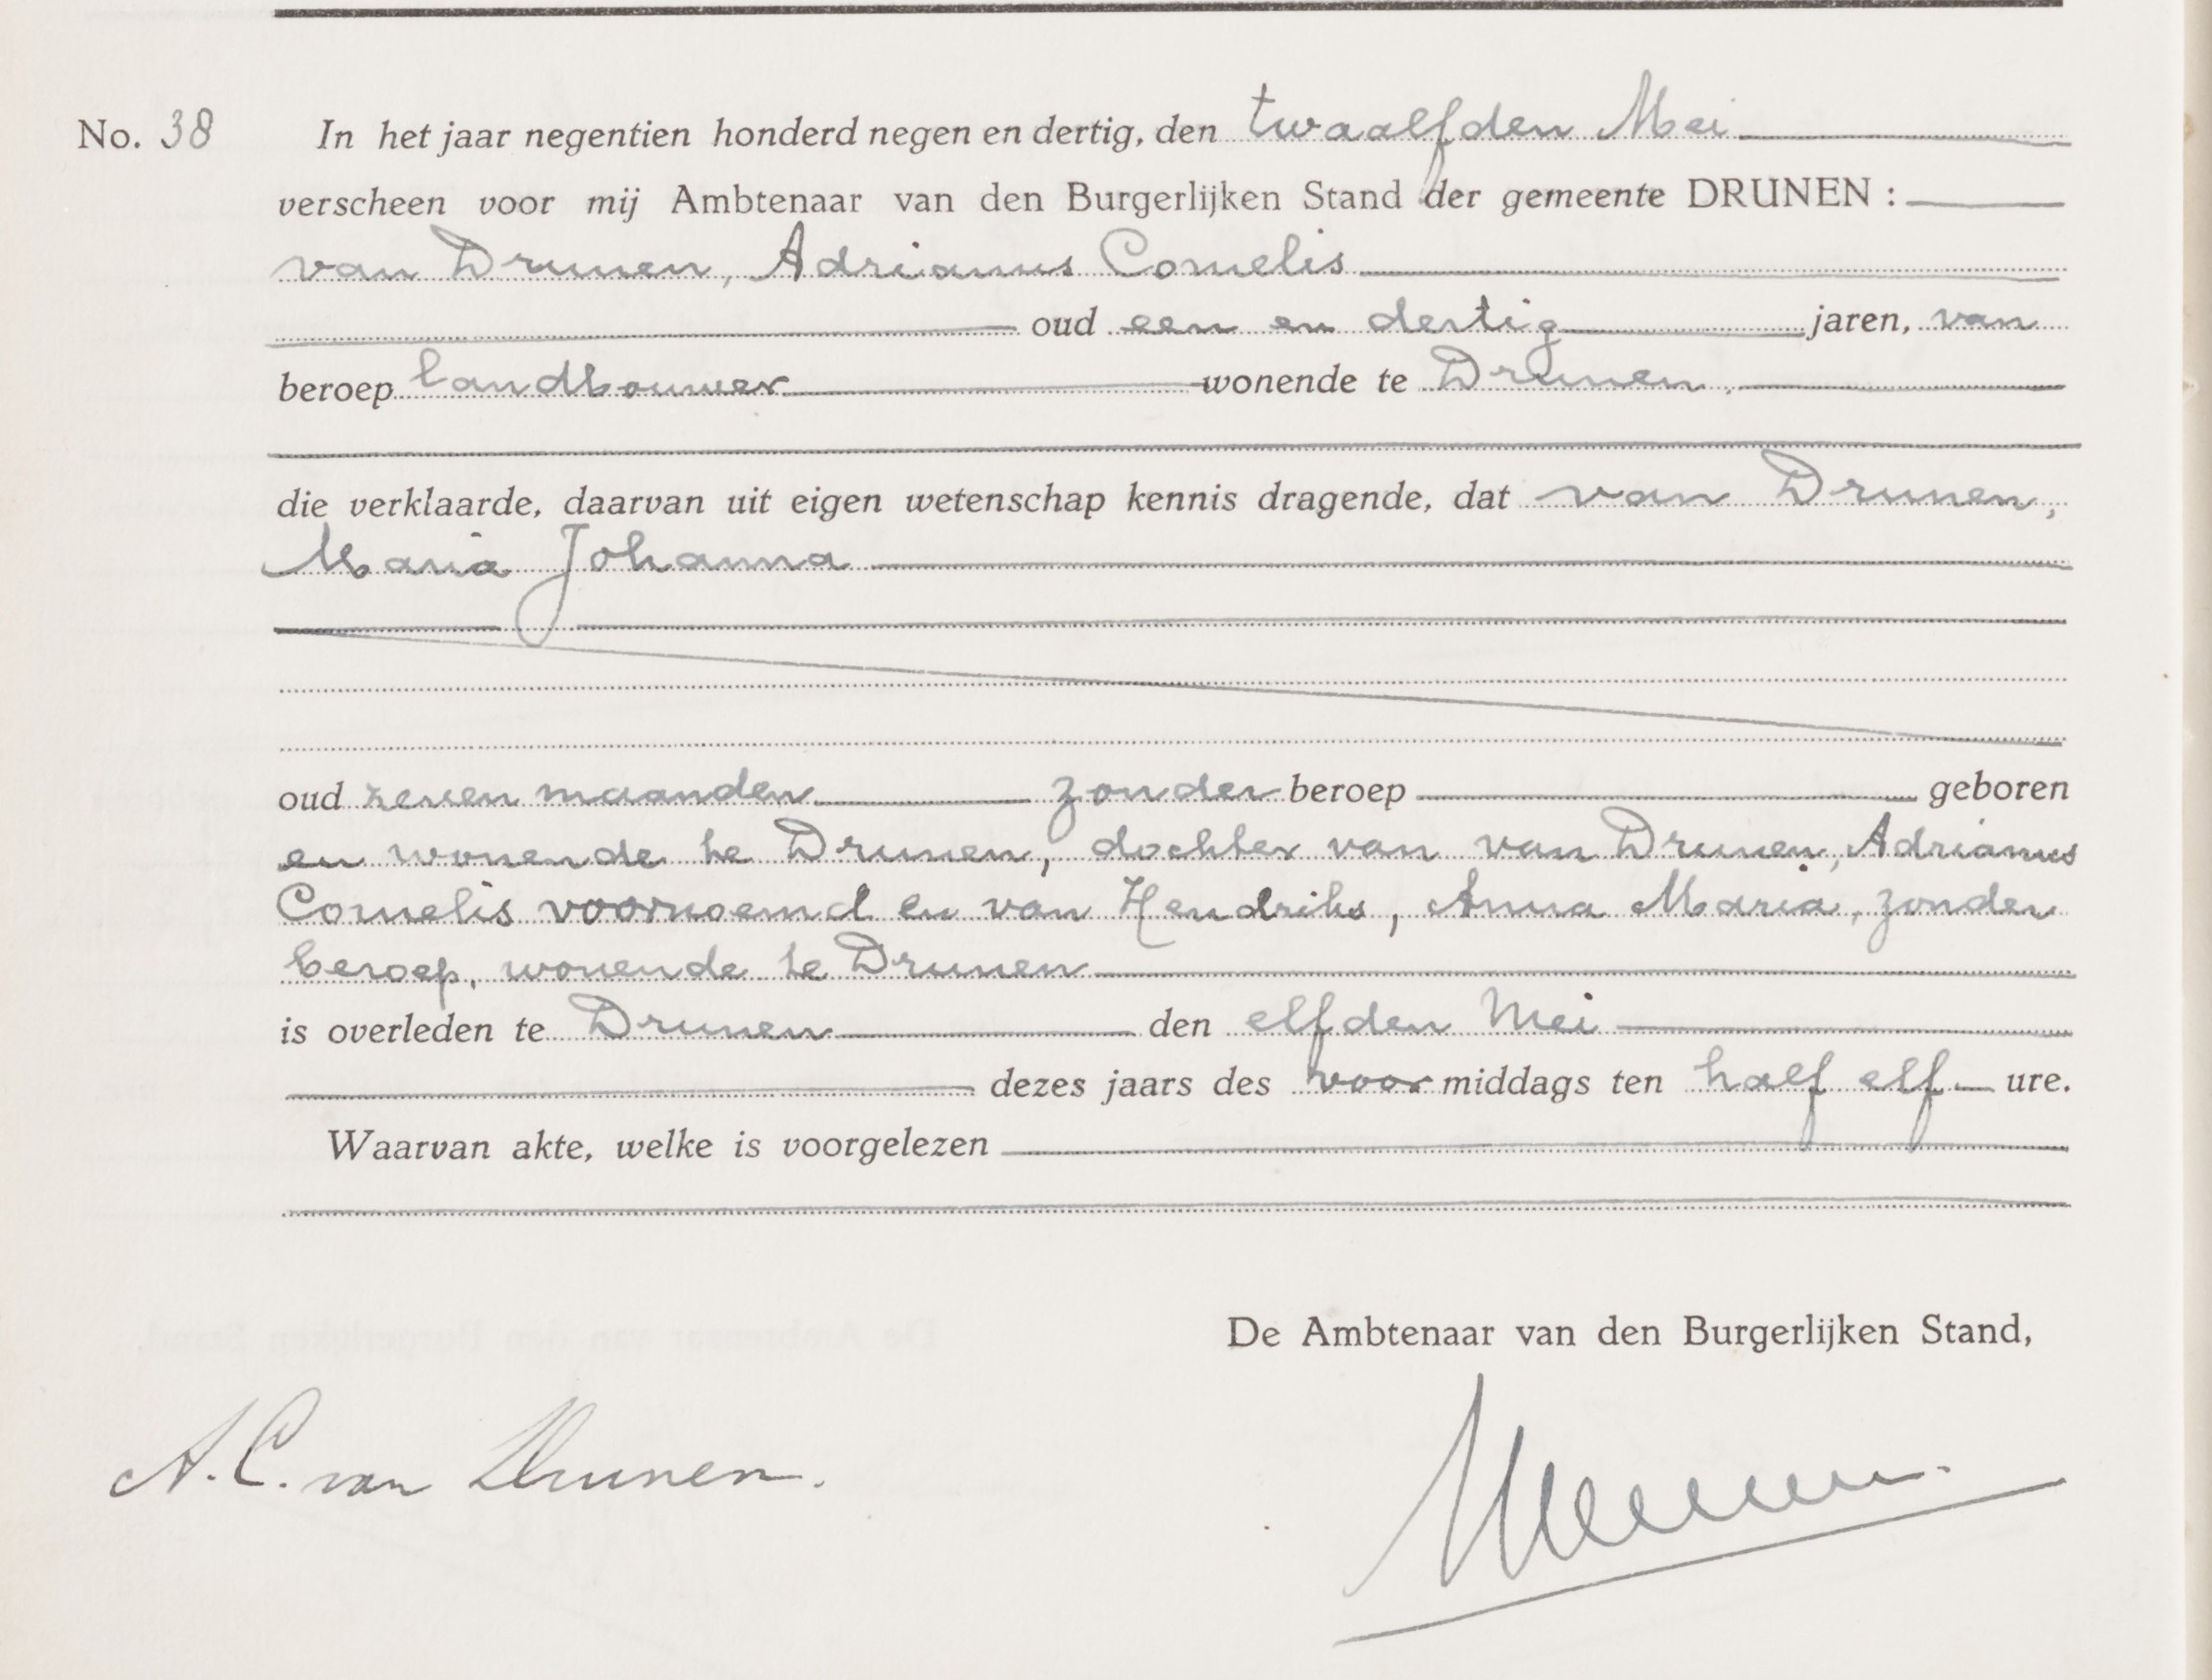 No. 38 In het jaar negentien honderd negen en dertig, den twaalfden Mei
verscheen voor mij Ambtenaar van den Burgerlijken Stand der gemeente DRUNEN :
van Drunen, Adrianus Cornelis
oud een en dertig jaren, van
beroep landbouwer wonende te Drunen,
die verklaarde, daarvan uit eigen wetenschap kennis dragende, dat van Drunen,
Maria Johanna
oud zeven maanden zonder beroep geboren
en wonende te Drunen, dochter van van Drunen, Adrianus
Cornelis voornoemd en van Hendriks, Anna Maria, zonder
beroep, wonende te Drunen
is overleden te Drunen den elfden Mei
dezes jaars des voormiddags ten half elf ure.
Waarvan akte, welke is voorgelezen
De Ambtenaar van den Burgerlijken Stand,
A. C. van Drunen.